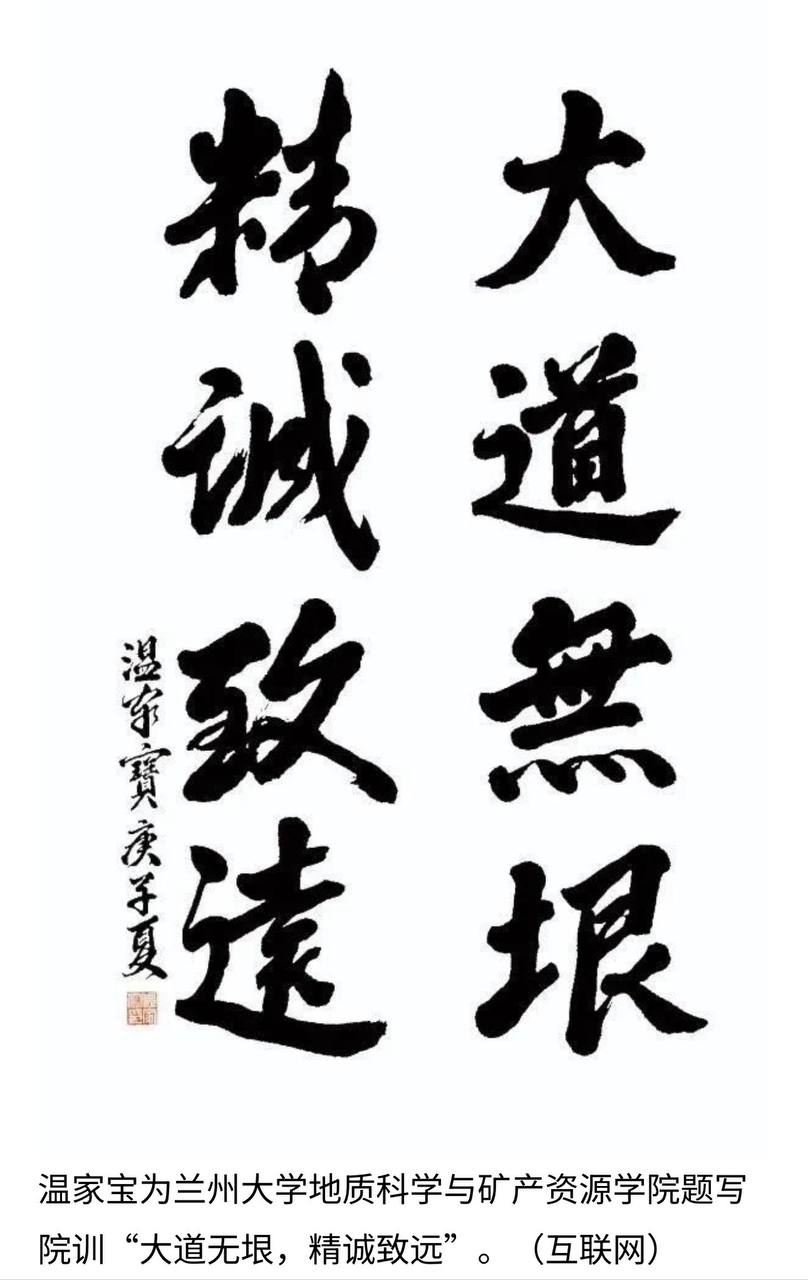 大道無垠
精誠致遠
温家寶庚子夏
温家宝为兰州大学地质科学与矿产资源学院题写
院训“大道无垠，精诚致远”。（互联网）